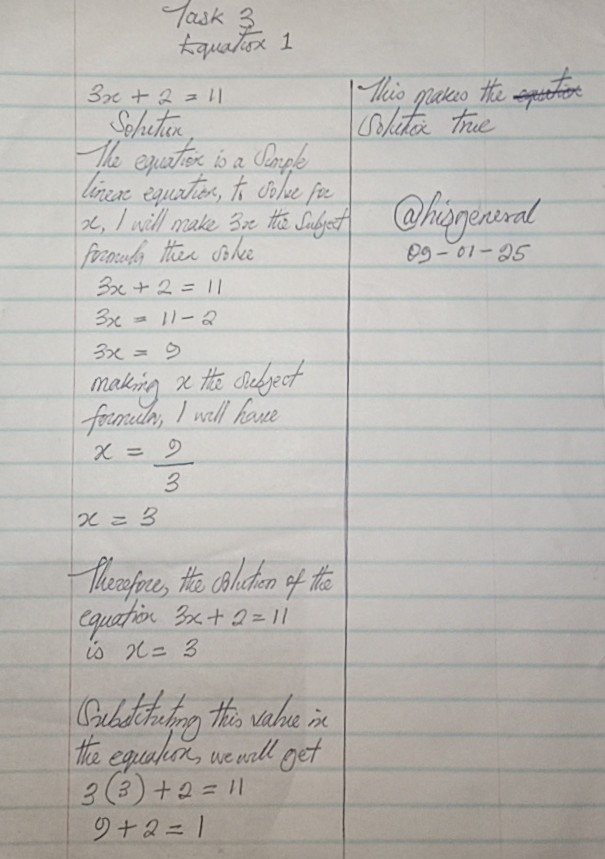 Task 3
Equation 1
3x + 2 = 11
Solution
The equation is a Simple
linear equation, to Solve for
x, I will make 3x the Subject
formula then solve
3x + 2 = 11
3x = 11 - 2
3x = 9
making x the Subject
formula, I will have
x = 9
3
x = 3
Therefore, the solution of the
equation 3x + 2 = 11
is x = 3
Substituting this value in
the equation, we will get
3(3) + 2 = 11
9 + 2 = 1
This makes the equation
Solution true
@hisgeneral
09-01-25